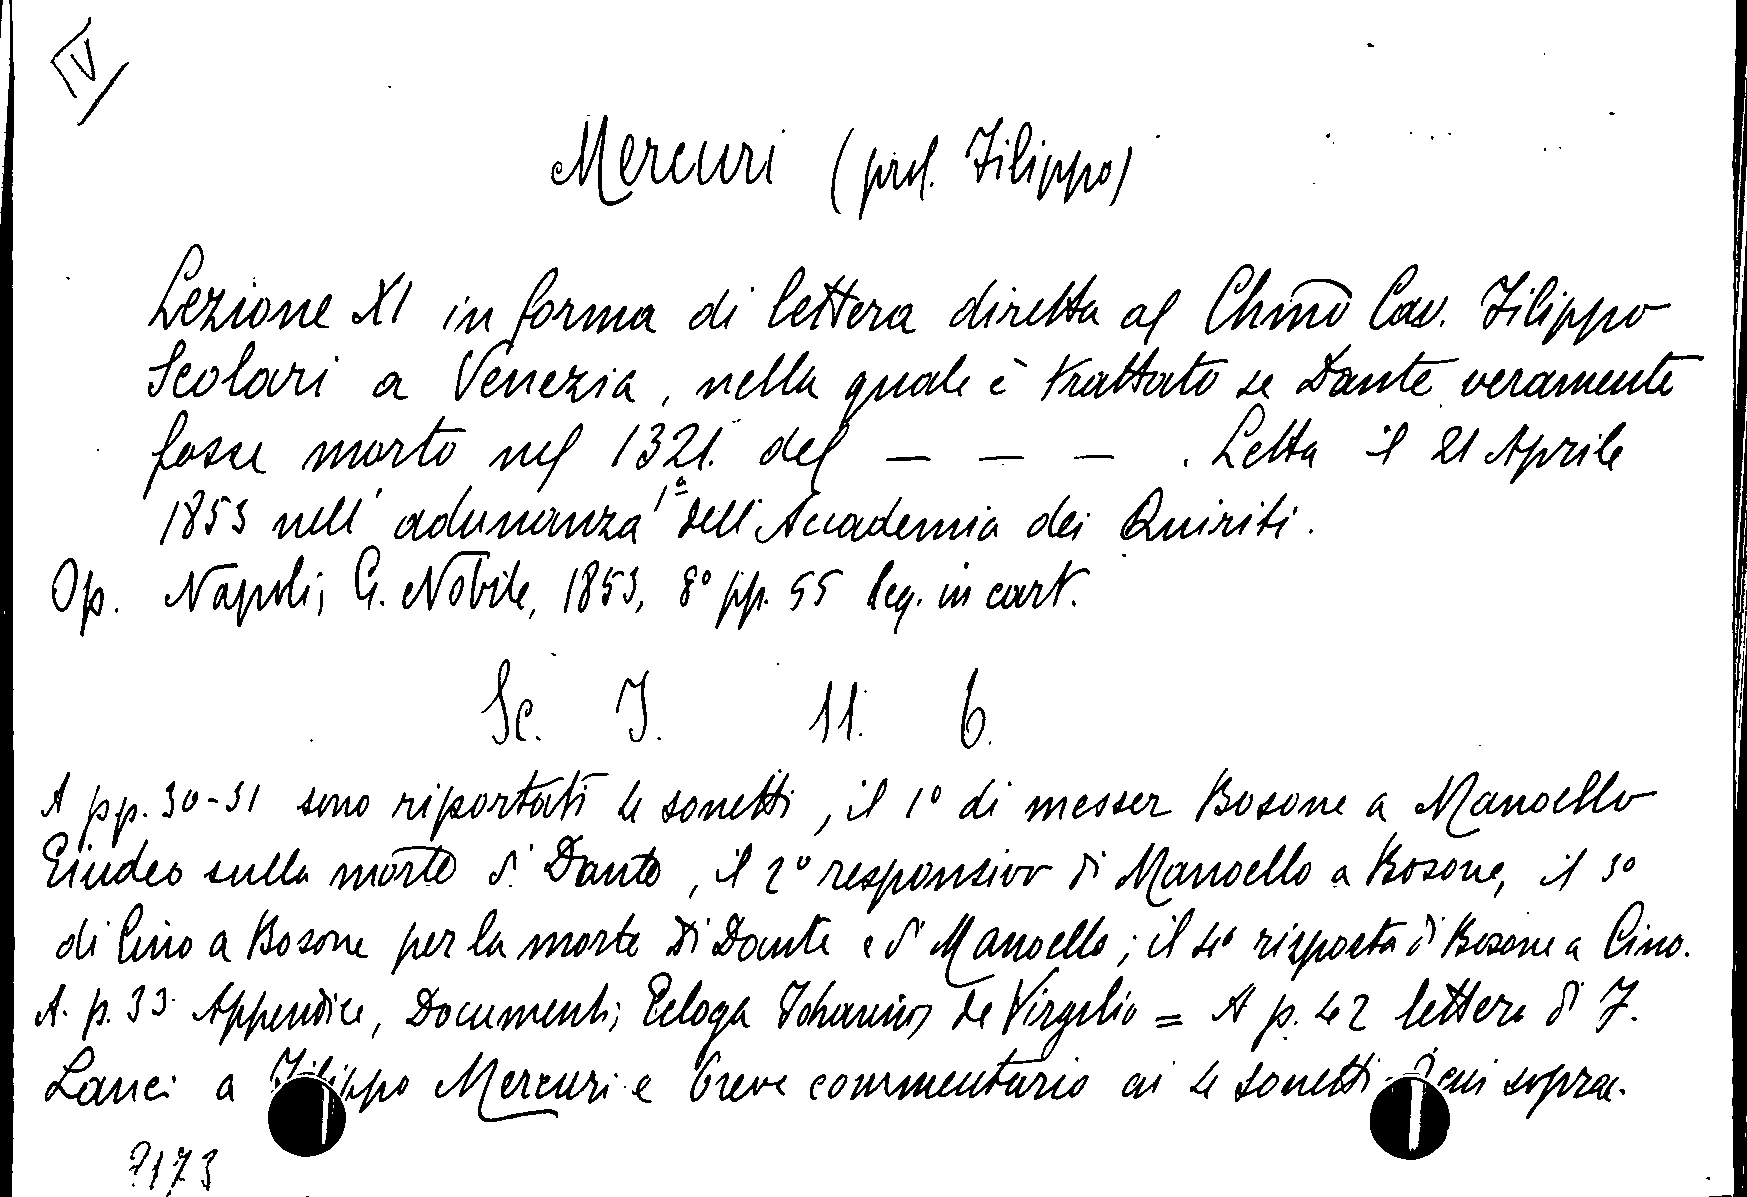 IV
Mercuri (prof. Filippo)
Lezione XI in forma di lettera diretta al Chmo Cav. Filippo
Scolari a Venezia, nella quale è trattato se Dante veramente
fosse morto nel 1321. del — — — . Letta il 21 Aprile
1853 nell' adunanza 1ª dell'Accademia dei Quiriti.
Op. Napoli; G. Nobile, 1853, 8° pp. 55 leg. in cart.
Sc. F. 11. 6.
A pp. 30-31 sono riportati 4 sonetti, il 1° di messer Bosone a Manoello
Giudeo sulla morte di Dante, il 2° responsivo di Manoello a Bosone, il 3°
di Cino a Bosone per la morte di Dante e di Manoello; il 4° risposta di Bosone a Cino.
A. p. 33 Appendice, Documenti; Ecloga Iohannis de Virgilio = A p. 42 lettera di F.
Lanci a Filippo Mercuri e breve commentario ai 4 sonetti di cui sopra.
?173